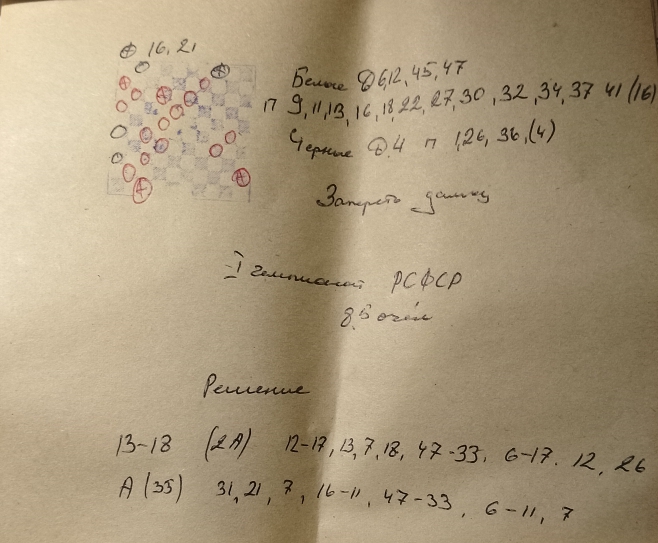 ⊕ 16, 21
Белые Д 6, 12, 45, 47
П 9, 11, 13, 16, 18, 22, 27, 30, 32, 34, 37 41 (16)
Черные Д. 4 п 1, 26, 36, (4)
Запереть дамку
I чемпионат РСФСР
8,5 очка
Решение
13-18 (2А) 12-17, 13, 7, 18, 47-33, 6-17. 12, 26
А (35) 31, 21, 7, 16-11, 47-33, 6-11, 7